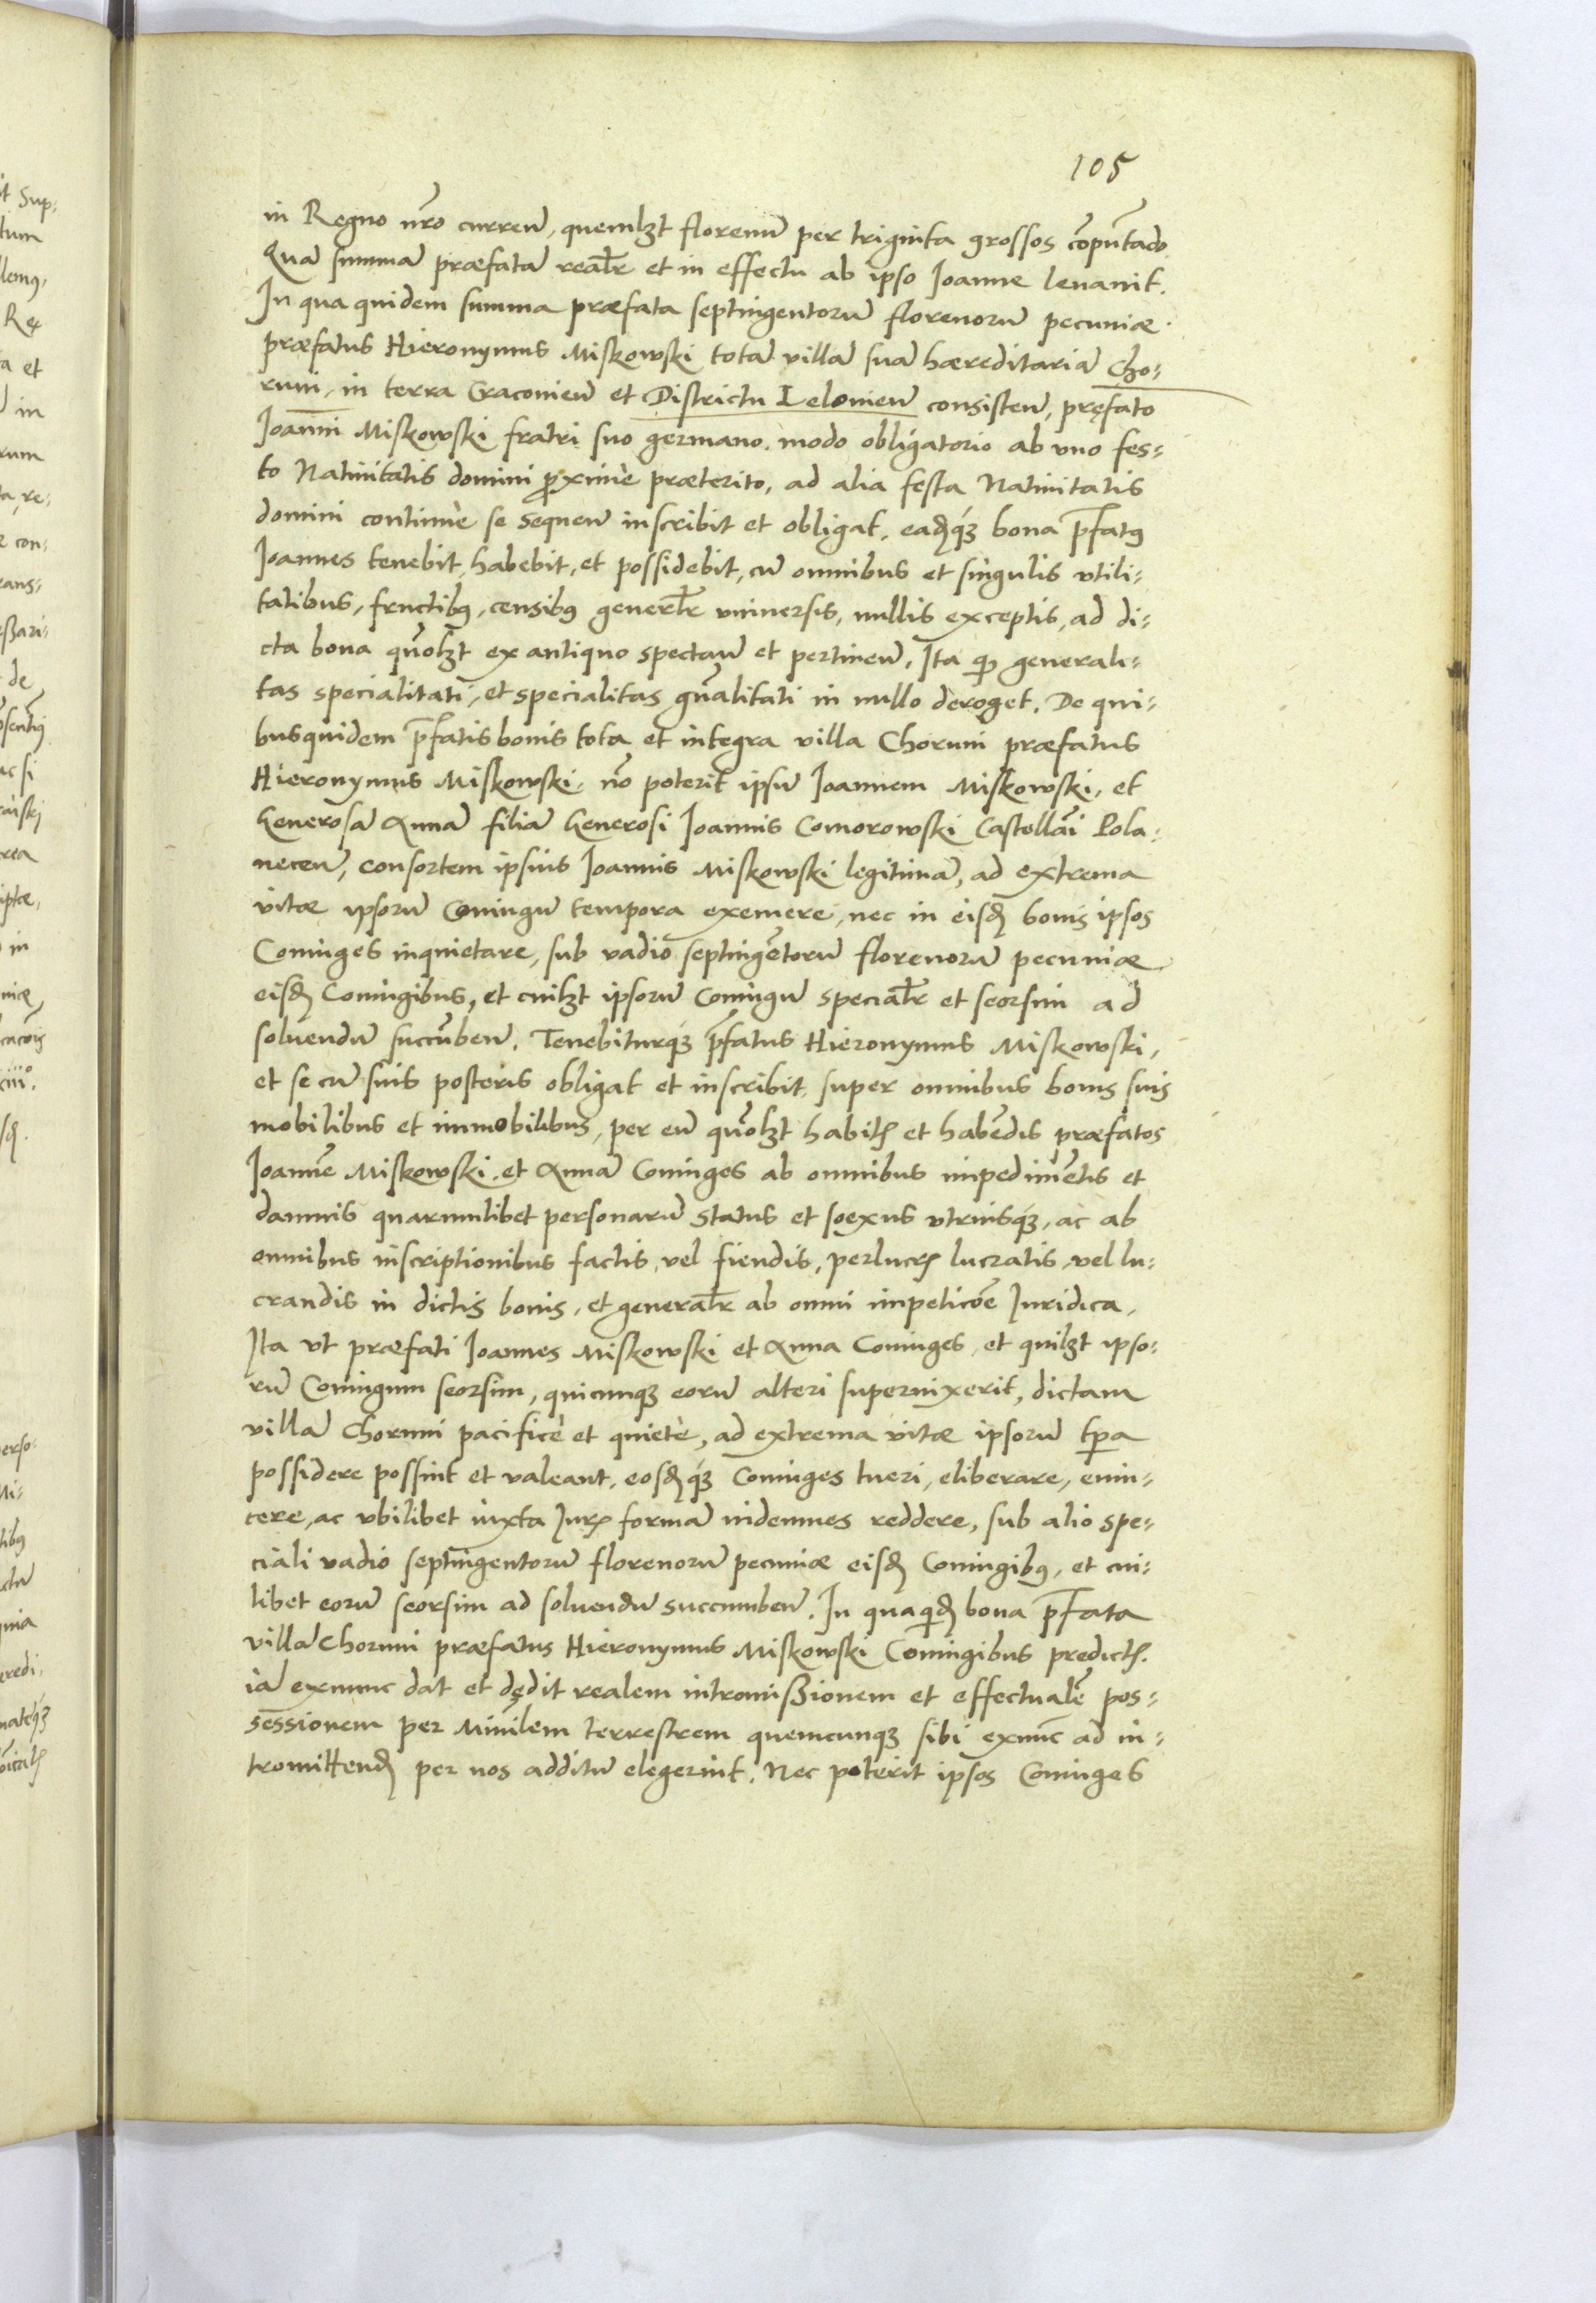 105
in Regno nr̃o curreñ, quemlȝt florenũ per triginta grossos cõputãdo.
Quã summã præfatã realr̃ et in effectu ab ipso Joanne leuauit.
In qua quidem summa præfata septingentorũ florenorũ pecuniæ
præfatus Hieronymus Miskowski totã villã suã hæreditariã Cho-
runi, in terra Cracouieñ et Districtu Lelouieñ consisteñ, pręfato
Joanni Miskowski fratri suo germano, modo obligatorio ab vno fes-
to Natiuitatis domini ꝓximè præterito, ad alia festa Natiuitatis
domini continuè se sequeñ inscribit et obligat, eadꝫq́ꝫ bona p̃fatꝰ
Joannes tenebit, habebit, et possidebit, cũ omnibus et singulis vtili-
tatibus, fructibꝰ, censibꝰ generalr̃ vniuersis, nullis exceptis, ad di-
cta bona quõlȝt ex antiquo spectañ et pertineñ, Ita ꝙ generali-
tas specialitati, et specialitas gñalitati in nullo deroget. De qui-
busquidem p̃fatis bonis tota et integra villa Choruni præfatus
Hieronymus Miskowski, nõ poterit ipsũ Joannem Miskowski, et
Generosã Annã filiã Generosi Joannis Comorowski Castellãi Pola-
neceñ, consortem ipsius Joannis Miskowski legitimã, ad extrema
vitæ ipsorũ Coniugũ tempora exemere, nec in eisdꝫ bonis ipsos
Coniuges inquietare, sub vadio septingẽtorũ florenorũ pecuniæ
eisdꝫ Coniugibus, et cuilȝt ipsorũ Coniugũ specialr̃ et seorsim ad
soluendũ succũbeñ. Tenebiturq́ꝫ p̃fatus Hieronymus Miskowski,
et se cũ suis posteris obligat et inscribit super omnibus bonis suis
mobilibus et immobilibus, per eũ quõlȝt habitꝭ et habẽdis præfatos
Joannẽ Miskowski et Annã Coniuges ab omnibus impedimẽtis et
damnis quarumlibet personarũ status et soexus vtriusq́ꝫ, ac ab
omnibus inscriptionibus factis vel fiendis, perlucrꝭ lucratis vel lu-
crandis in dictis bonis, et generalr̃ ab omni impeticõe Juridica,
Ita vt præfati Joannes Miskowski et Anna Coniuges, et quilȝt ipso-
rũ Coniugum seorsim, quicunqꝫ eorũ alteri superuixerit, dictam
villã Choruni pacificè et quietè, ad extrema vitæ ipsorũ tp̃a
possidere possint et valeant, eosdꝫq́ꝫ Coniuges tueri, eliberare, euin-
cere, ac vbilibet iuxta Jurꝭ formã indemnes reddere, sub alio spe-
ciali vadio septingentorũ florenorũ pecuniæ eisdꝫ Coniugibꝰ, et cui-
libet eorũ seorsim ad soluendũ succumbeñ. In quæqͥdꝫ bona p̃fata
villã Choruni præfatus Hieronymus Miskowski Coniugibus predictꝭ.
iã exnunc dat et dędit realem intromißionem et effectualẽ pos-
sessionem per Minĩlem terrestrem quemcunqꝫ sibi exnũc ad in-
tromittendꝫ per nos additũ elegerint. Nec poterit ipsos Coniuges